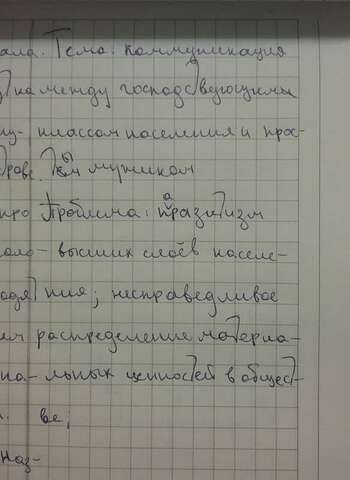 ала. Тема: коммуникация
на между господствующим
му- классом населения и прос-
тым мужиком
про Проблема: паразитизм
высших слоёв населе-
ния; несправедливое
ем распределение материа-
на- льных ценностей в общест-
ве;
наз-